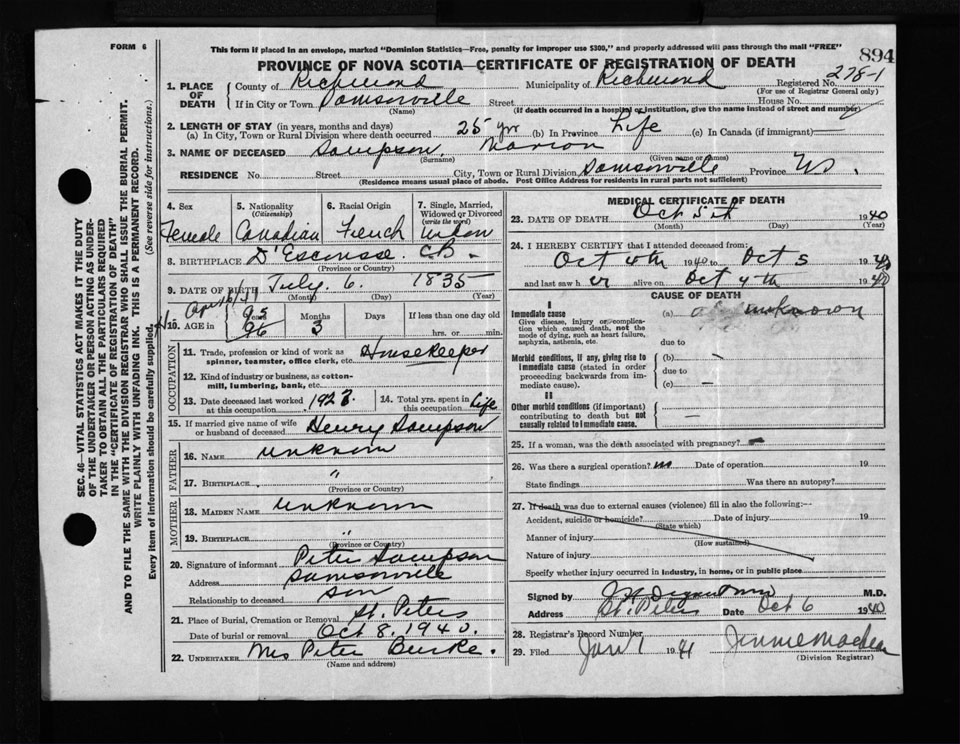 FORM 6
This form if placed in an envelope, marked "Dominion Statistics—Free, penalty for improper use $300," and properly addressed will pass through the mail "FREE"
894
PROVINCE OF NOVA SCOTIA—CERTIFICATE OF REGISTRATION OF DEATH
1. PLACE OF DEATH
County of Richmond Municipality of Richmond Registered No. 278-1
(For use of Registrar General only)
If in City or Town Samsonville Street House No.
(Name) (If death occurred in a hospital or institution, give the name instead of street and number)
2. LENGTH OF STAY (in years, months and days)
(a) In City, Town or Rural Division where death occurred 25 yrs (b) In Province Life (c) In Canada (if immigrant) —
3. NAME OF DECEASED Sampson Marion
(Surname) (Given name or names)
RESIDENCE No. Street City, Town or Rural Division Samsonville Province NS.
(Residence means usual place of abode. Post Office Address for residents in rural parts not sufficient)
4. Sex Female
5. Nationality (Citizenship) Canadian
6. Racial Origin French
7. Single, Married, Widowed or Divorced (write the word) Widow
8. BIRTHPLACE D'Escousse C.B.
(Province or Country)
9. DATE OF BIRTH July 6 1835
(Month) (Day) (Year)
10. AGE in Years 95 96 Months 3 Days If less than one day old hrs. or min.
OCCUPATION
11. Trade, profession or kind of work as spinner, teamster, office clerk, etc. Housekeeper
12. Kind of industry or business, as cotton-mill, lumbering, bank, etc.
13. Date deceased last worked at this occupation 1928
14. Total yrs. spent in this occupation Life
15. If married give name of wife or husband of deceased Henry Sampson
FATHER
16. NAME unknown
17. BIRTHPLACE "
(Province or Country)
MOTHER
18. MAIDEN NAME unknown
19. BIRTHPLACE "
(Province or Country)
20. Signature of informant Peter Sampson
Address Samsonville
Relationship to deceased son
21. Place of Burial, Cremation or Removal St. Peters
Date of burial or removal Oct 8. 1940.
22. UNDERTAKER Mrs Peter Burke.
(Name and address)
MEDICAL CERTIFICATE OF DEATH
23. DATE OF DEATH Oct 5th 1940
(Month) (Day) (Year)
24. I HEREBY CERTIFY that I attended deceased from:
Oct 4th 1940 to Oct 5 1940
and last saw her alive on Oct 4th 1940
CAUSE OF DEATH
I
Immediate cause
Give disease, injury or complication which caused death, not the mode of dying, such as heart failure, asphyxia, asthenia, etc.
(a) unknown
due to
Morbid conditions, if any, giving rise to immediate cause (stated in order proceeding backwards from immediate cause).
(b) —
due to
(c) —
II
Other morbid conditions (if important) contributing to death but not causally related to immediate cause. —
25. If a woman, was the death associated with pregnancy? —
26. Was there a surgical operation? no Date of operation 19
State findings Was there an autopsy?
27. If death was due to external causes (violence) fill in also the following:—
Accident, suicide or homicide? Date of injury 19
(State which)
Manner of injury
(How sustained)
Nature of injury
Specify whether injury occurred in industry, in home, or in public place
Signed by M.D.
Address St. Peters Date Oct 6 1940
28. Registrar's Record Number
29. Filed Jan 1 1941 Jennie MacLean
(Division Registrar)
SEC. 46—VITAL STATISTICS ACT MAKES IT THE DUTY OF THE UNDERTAKER OR PERSON ACTING AS UNDERTAKER TO OBTAIN ALL THE PARTICULARS REQUIRED IN THE "CERTIFICATE OF REGISTRATION OF DEATH" AND TO FILE THE SAME WITH THE DIVISION REGISTRAR WHO SHALL ISSUE THE BURIAL PERMIT.
WRITE PLAINLY WITH UNFADING INK. THIS IS A PERMANENT RECORD.
Every item of information should be carefully supplied. (See reverse side for instructions.)